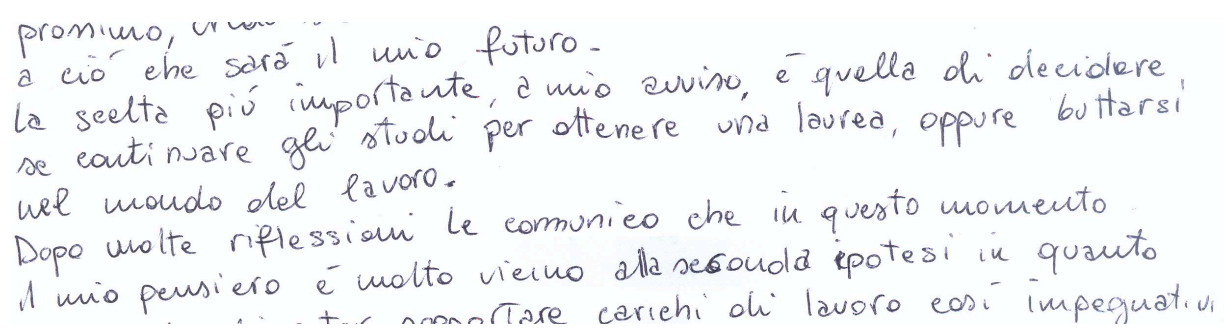 prossimo,
a ciò che sarà il mio futuro.
la scelta più importante, a mio avviso, è quella di decidere,
se continuare gli studi per ottenere una laurea, oppure buttarsi
nel mondo del lavoro.
Dopo molte riflessioni le comunico che in questo momento
il mio pensiero è molto vicino alla seconda ipotesi in quanto
sopportare carichi di lavoro così impegnativi